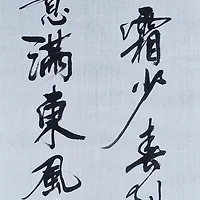 霜少春
意滿東風